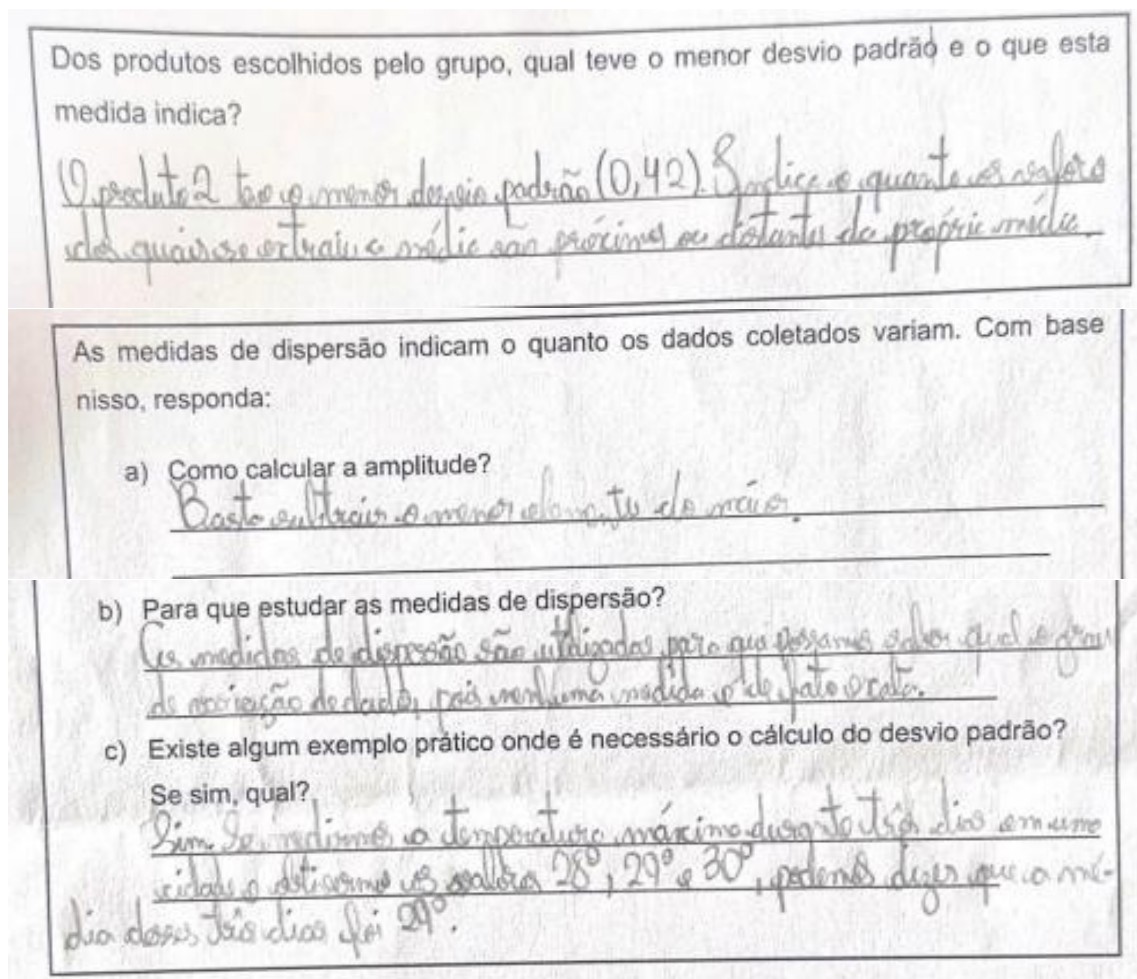 Dos produtos escolhidos pelo grupo, qual teve o menor desvio padrão e o que esta
medida indica?
O produto 2 teve o menor desvio padrão (0,42). Indica o quanto os valores
dos quais se extraiu a média são próximos ou distantes da própria média.
As medidas de dispersão indicam o quanto os dados coletados variam. Com base
nisso, responda:
a) Como calcular a amplitude?
Basta subtrair o menor elemento do maior.
b) Para que estudar as medidas de dispersão?
As medidas de dispersão são utilizadas para que possamos saber qual o grau
de variação de dados, pois nenhuma medida é de fato exata.
c) Existe algum exemplo prático onde é necessário o cálculo do desvio padrão?
Se sim, qual?
Sim. Se medirmos a temperatura máxima durante três dias em uma
cidade e os valores 28°, 29° e 30°, podemos dizer que a mé-
dia desses três dias foi 29°.